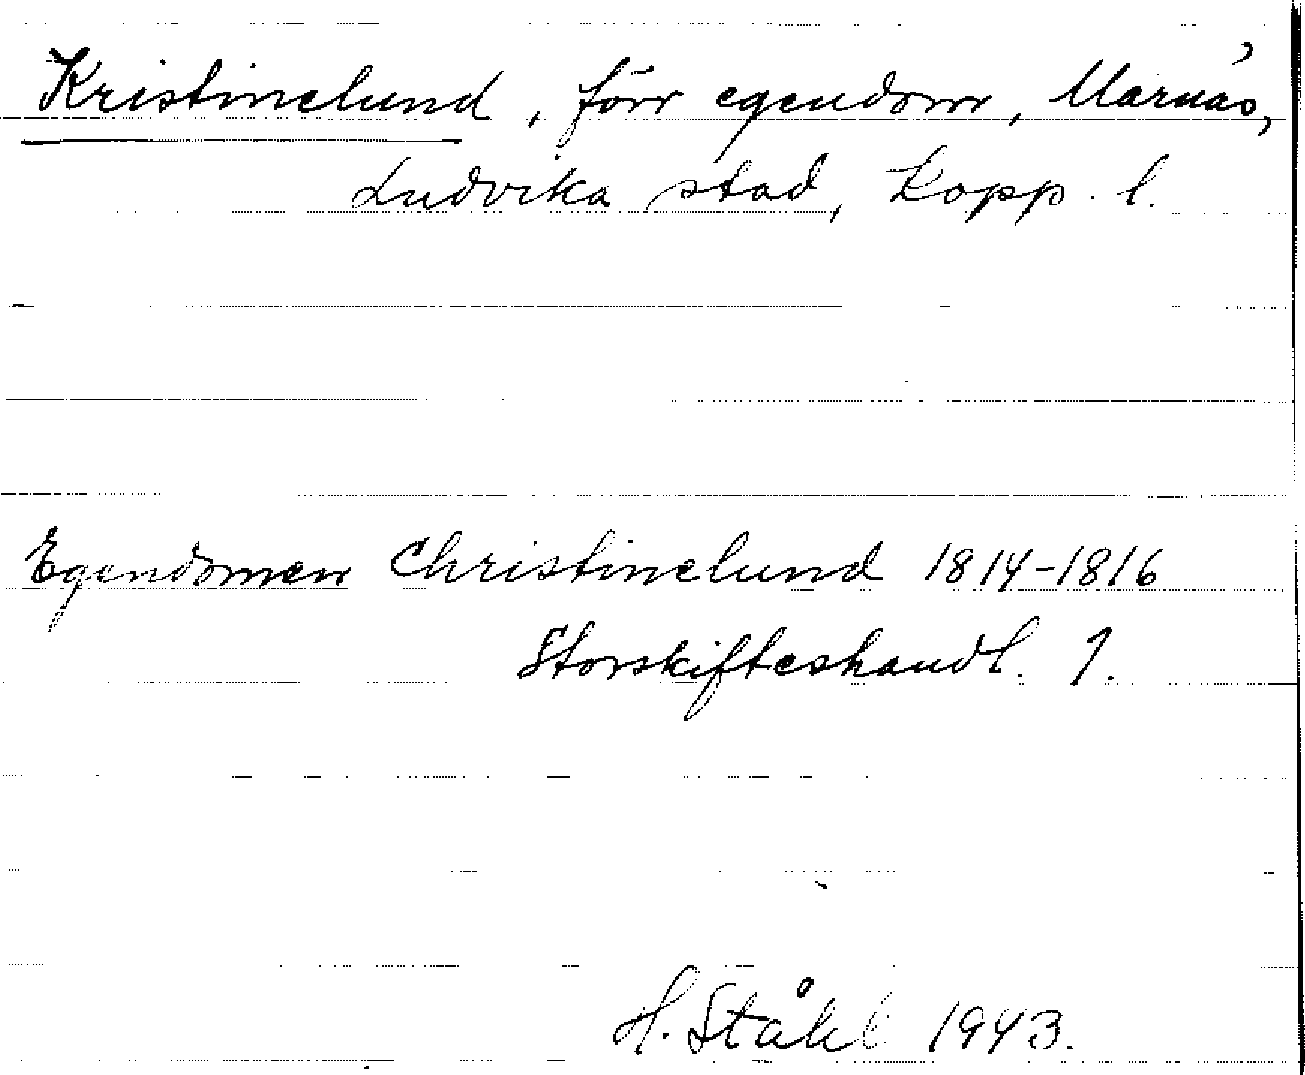 Kristinelund, förr egendom, Marnäs,
Ludvika stad, Kopp. l.
Egendomen Christinelund 1814-1816
Storskifteshandl. 1.
H. Ståhl 1943.